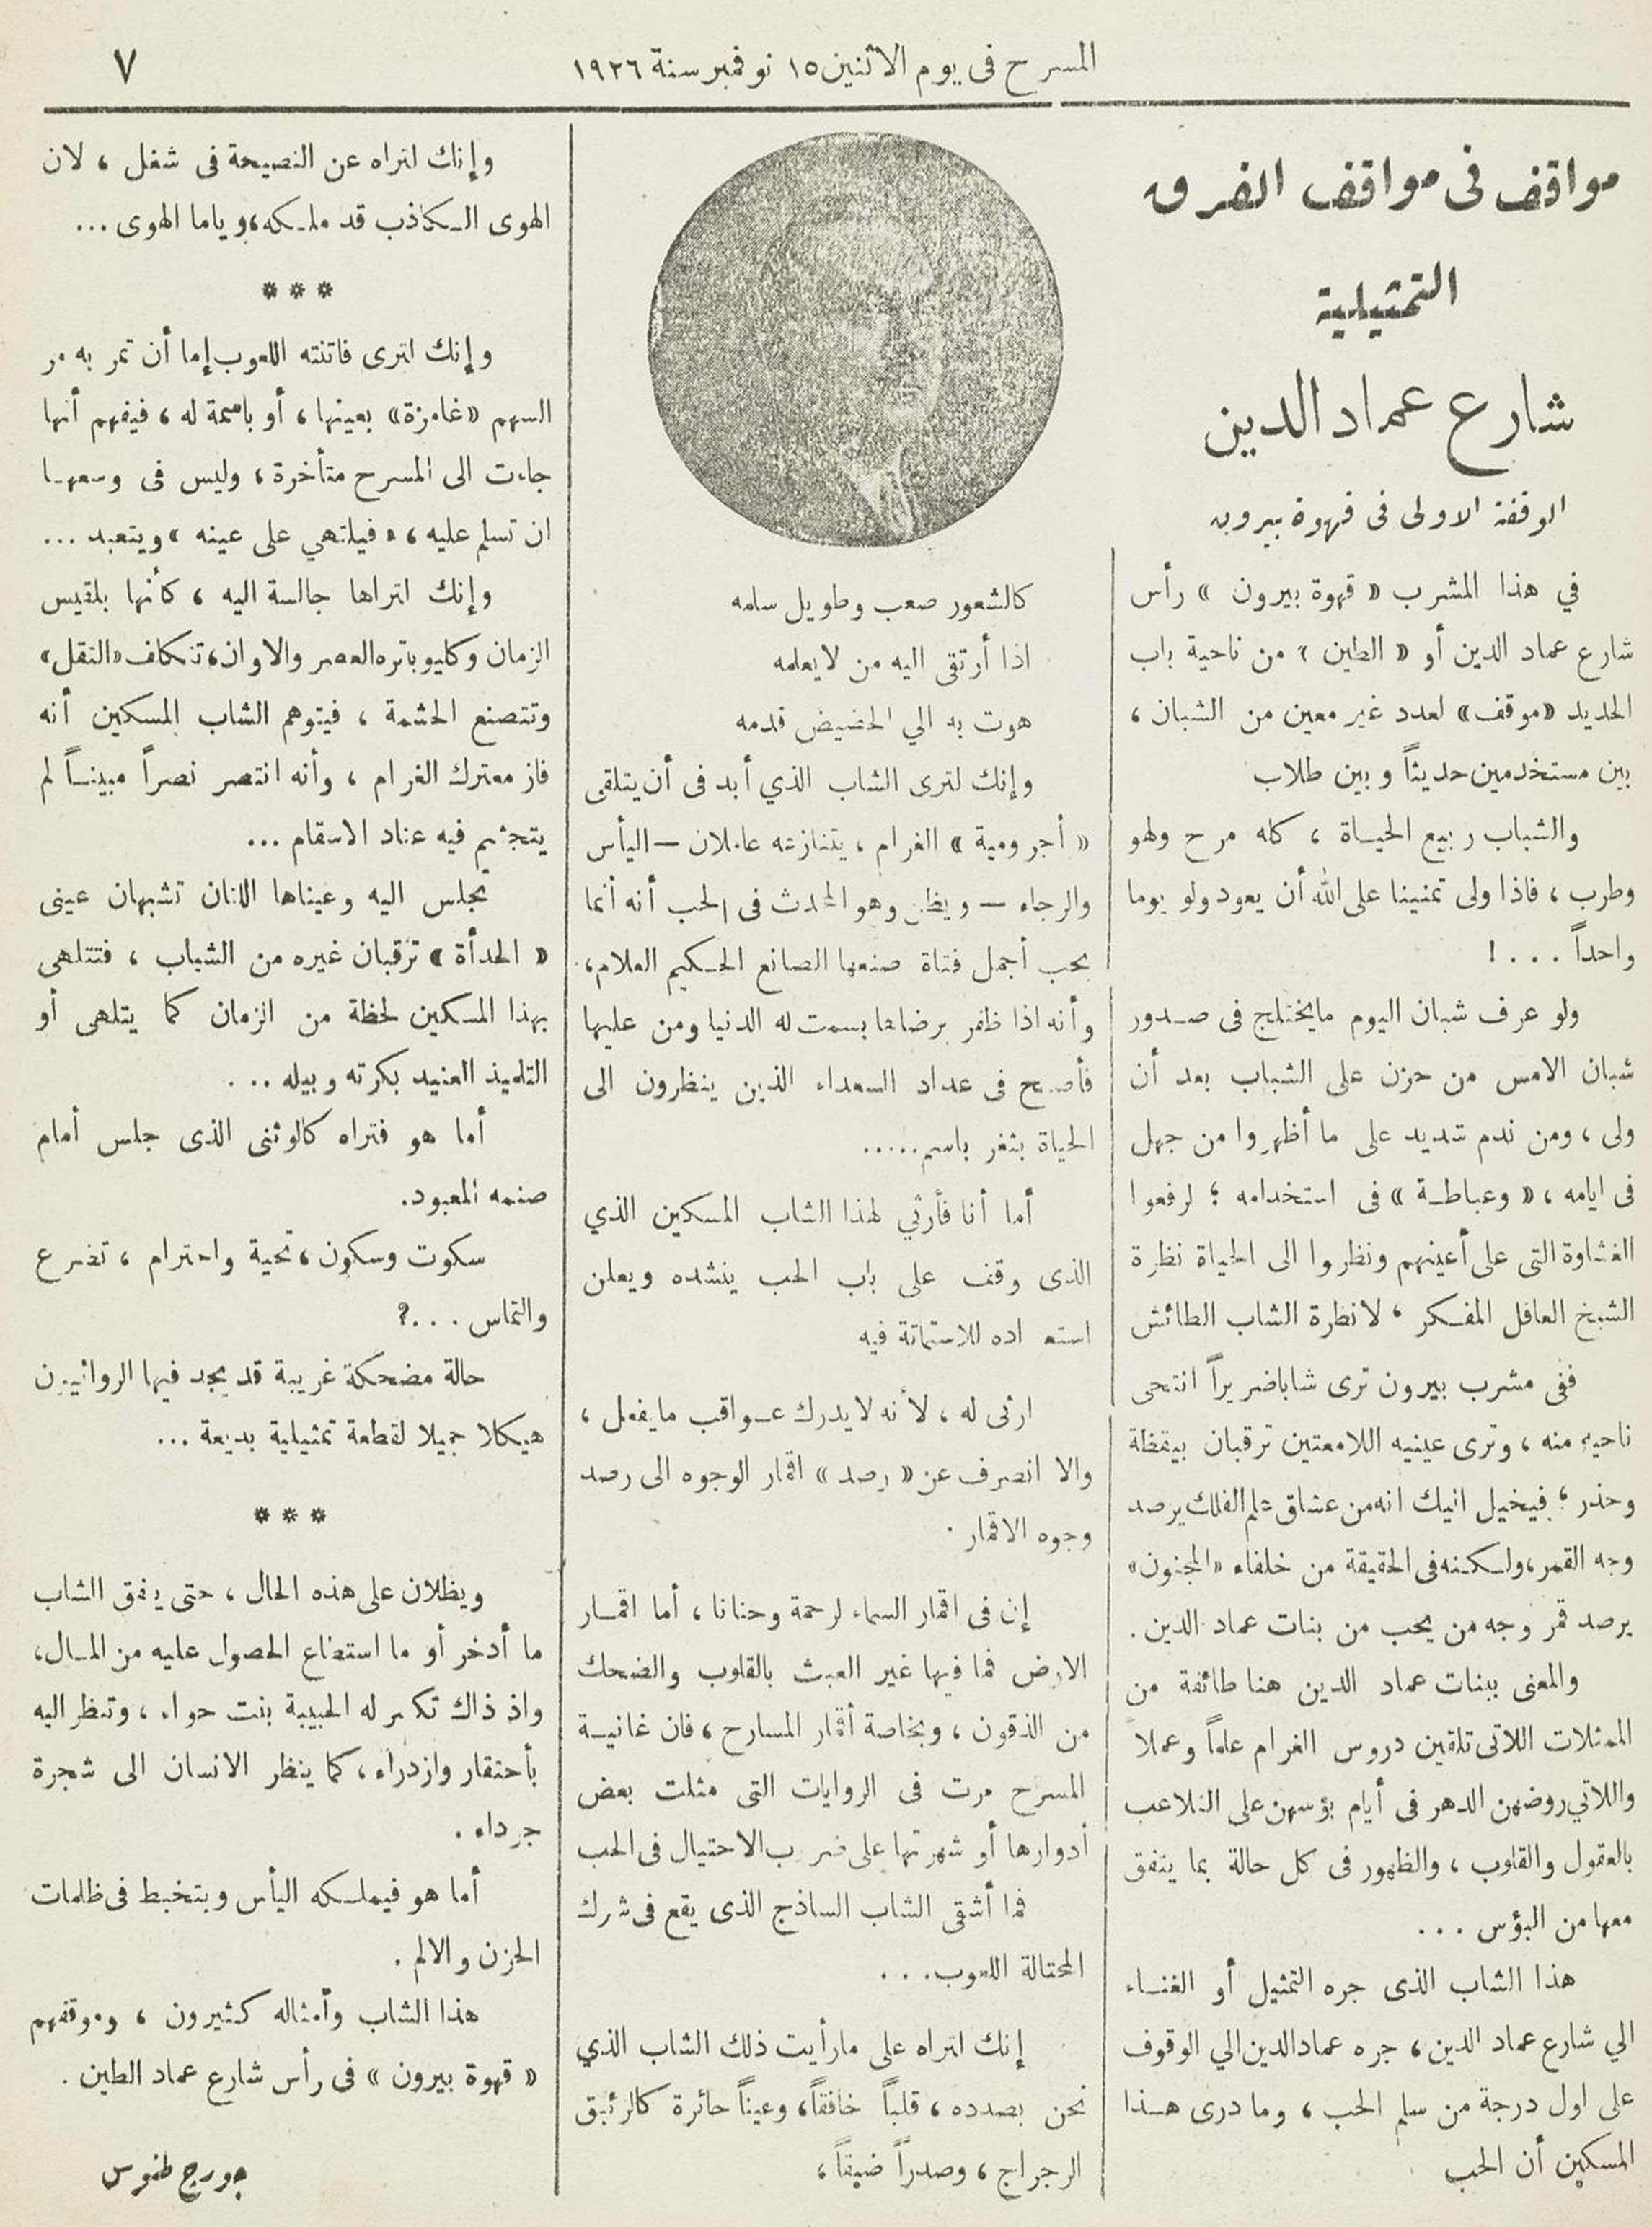 المسرح فى يوم الاثنين ١٥ نوفمبر سنة ١٩٢٦
٧
مواقف فى مواقف الفرق
التمثيلية
شارع عماد الدين
الوقفة الاولى فى قهوة بيرون
في هذا المشرب « قهوة بيرون » رأس
شارع عماد الدين أو « الطين » من ناحية باب
الحديد «موقف» لعدد غير معين من الشبان ،
بين مستخدمين حديثاً وبين طلاب
والشباب ربيع الحياة ، كله مرح ولهو
وطرب ، فاذا ولى تمنينا على الله أن يعود ولو يوما
واحداً . . . !
ولو عرف شبان اليوم مايختلج فى صدور
شبان الامس من حزن على الشباب بعد أن
ولى ، ومن ندم شديد على ما أظهروا من جهل
فى ايامه ، « وعباطة » فى استخدامه ؛ لرفعوا
الغشاوة التى على أعينهم ونظروا الى الحياة نظرة
الشيخ العاقل المفكر ، لا نظرة الشاب الطائش
ففى مشرب بيرون ترى شابا ضريراً انتحى
ناحية منه ، وترى عينيه اللامعتين ترقبان بيقظة
وحذر ؛ فيخيل اليك انه من عشاق علم الفلك يرصد
وجه القمر ، ولكنه فى الحقيقة من خلفاء «المجنون»
يرصد قمر وجه من يحب من بنات عماد الدين .
والمعنى ببنات عماد الدين هنا طائفة من
الممثلات اللاتى تلقين دروس الغرام علماً وعملا
واللاتي روضهن الدهر فى أيام بؤسهن على التلاعب
بالعقول والقلوب ، والظهور فى كل حالة بما يتفق
معها من البؤس ...
هذا الشاب الذى جره التمثيل أو الغناء
الي شارع عماد الدين ، جره عماد الدين الي الوقوف
على اول درجة من سلم الحب ، وما درى هذا
المسكين أن الحب
كالشعور صعب وطويل سلمه
اذا أرتقى اليه من لا يعلمه
هوت به الي الحضيض قدمه
وإنك لترى الشاب الذي أبد فى أن يتلقى
« أجرومية » الغرام ، يتنازعه عاملان — اليأس
والرجاء — ويظن وهو المحدث فى الحب أنه أنما
يحب أجمل فتاة صنعها الصانع الحكيم العلام ،
وأنه اذا ظفر برضاها بسمت له الدنيا ومن عليها
فأصبح فى عداد السعداء الذين ينظرون الى
الحياة بثغر باسم.....
أما أنا فأرثي لهذا الشاب المسكين الذي
الذى وقف على باب الحب ينشده ويعلن
استعداده للاستماتة فيه
ارثى له ، لأنه لا يدرك عواقب ما يفعل ،
والا انصرف عن « رصد » اقمار الوجوه الى رصد
وجوه الاقمار .
إن فى اقمار السماء لرحمة وحنانا ، أما اقمار
الارض فما فيها غير العبث بالقلوب والضحك
من الذقون ، وبخاصة أقمار المسارح ، فان غانية
المسرح مرت فى الروايات التى مثلت بعض
أدوارها أو شهرتها على ضروب الاحتيال فى الحب
فما أشقى الشاب الساذج الذى يقع فى شرك
المحتالة اللعوب...
إنك لتراه على مارأيت ذلك الشاب الذي
نحن بصدده ، قلباً خافقاً ، وعيناً حائرة كالزئبق
الرجراج ، وصدراً ضيقاً ،
وإنك لتراه عن النصيحة فى شغل ، لان
الهوى الكاذب قد ملكه ، وياما الهوى ...
* * *
وإنك لترى فاتنته اللعوب إما أن تمر به مر
السهم «غامزة» بعينها ، أو باسمة له ، فيفهم أنها
جاءت الى المسرح متأخرة ، وليس فى وسعها
ان تسلم عليه ، « فيلتهي على عينه » ويتعبد ...
وإنك لتراها جالسة اليه ، كأنها بلقيس
الزمان وكليوباتره العصر والاوان ، تتكلف «التقل»
وتتصنع الحشمة ، فيتوهم الشاب المسكين أنه
فاز معترك الغرام ، وأنه انتصر نصراً مبيناً لم
يتجشم فيه عناد الاسقام ...
تجلس اليه وعيناها اللتان تشبهان عينى
« الحدأة » ترقبان غيره من الشباب ، فتتلهى
بهذا المسكين لحظة من الزمان كما يتلهى أو
التلميذ العنيد بكرته وبيله ...
أما هو فتراه كالوثنى الذى جلس أمام
صنمه المعبود.
سكوت وسكون ، تحية واحترام ، تضرع
والتماس ...؟
حالة مضحكة غريبة قد يجد فيها الروائيون
هيكلا جميلا لقطعة تمثيلية بديعة ...
* * *
ويظلان على هذه الحال ، حتى ينفق الشاب
ما أدخر أو ما استطاع الحصول عليه من المال ،
واذ ذاك تكشر له الحبيبة بنت حواء ، وتنظر اليه
بأحتقار وازدراء ، كما ينظر الانسان الى شجرة
جرداء .
أما هو فيملكه اليأس ويتخبط فى ظلمات
الحزن والالم .
هذا الشاب وأمثاله كثيرون ، وموقفهم
« قهوة بيرون » فى رأس شارع عماد الطين .
جورج طنوس